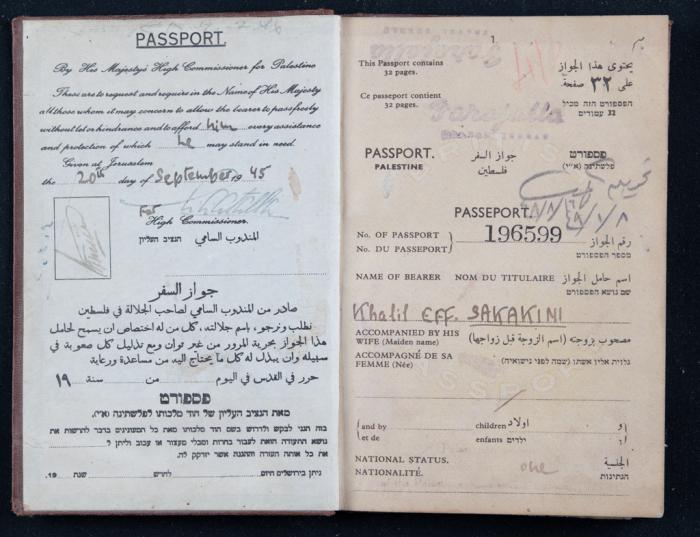 PASSPORT.
By His Majesty's High Commissioner for Palestine
These are to request and require in the Name of His Majesty
all those whom it may concern to allow the bearer to pass freely
without let or hindrance and to afford him every assistance
and protection of which he may stand in need.
Given at Jerusalem
the 20th day of September 1945
For
High Commissioner.
המندوב
المندوب السامي הנציב העליון
جواز السفر
صادر من المندوب السامي لصاحب الجلالة في فلسطين
نطلب ونرجو، باسم جلالته، كل من له اختصاص ان يسمح لحامل
هذا الجواز بحرية المرور من غير توان ومع تذليل كل صعوبة في
سبيله وان يبذل له كل ما يحتاج اليه من مساعدة ورعاية
حرر في القدس في اليوم من سنة ١٩
פספורט
מאת הנציב העליון של הוד מלכותו לפלשתינה (א״י).
בזה הנני לבקש ולדרוש בשם הוד מלכותו מאת כל המעונינים בדבר להרשות את
נושא התעודה הזאת לעבור בחרות ומבלי מעצור או עכוב וליתן ל
את כל אותה העזרה וההגנה אשר יזדקק לה.
ניתן בירושלים היום לחדש שנת 19.
1.
This Passport contains
32 pages.
يحتوي هذا الجواز
على ٣٢ صفحة.
Ce passeport contient
32 pages.
הפספורט הזה מכיל
32 עמודים
Farajalla
PASSPORT.
PALESTINE
جواز السفر
فلسطين
פספורט
פלשתינה (א״י)
PASSEPORT.
No. OF PASSPORT
No. DU PASSEPORT
196599
رقم الجواز
מספר הפספורט
NAME OF BEARER NOM DU TITULAIRE اسم حامل الجواز
שם נושא הפספורט
Khalil Eff. SAKAKINI
ACCOMPANIED BY HIS
WIFE (Maiden name)
مصحوب بزوجته (اسم الزوجة قبل زواجها)
ACCOMPAGNÉ DE SA
FEMME (Née)
נלוית אליו אשתו (שמה לפני נישואיה)
and by children اولاد و
et de enfants ילדים ו
NATIONAL STATUS. الجنسية
NATIONALITÉ. הנתינות
one